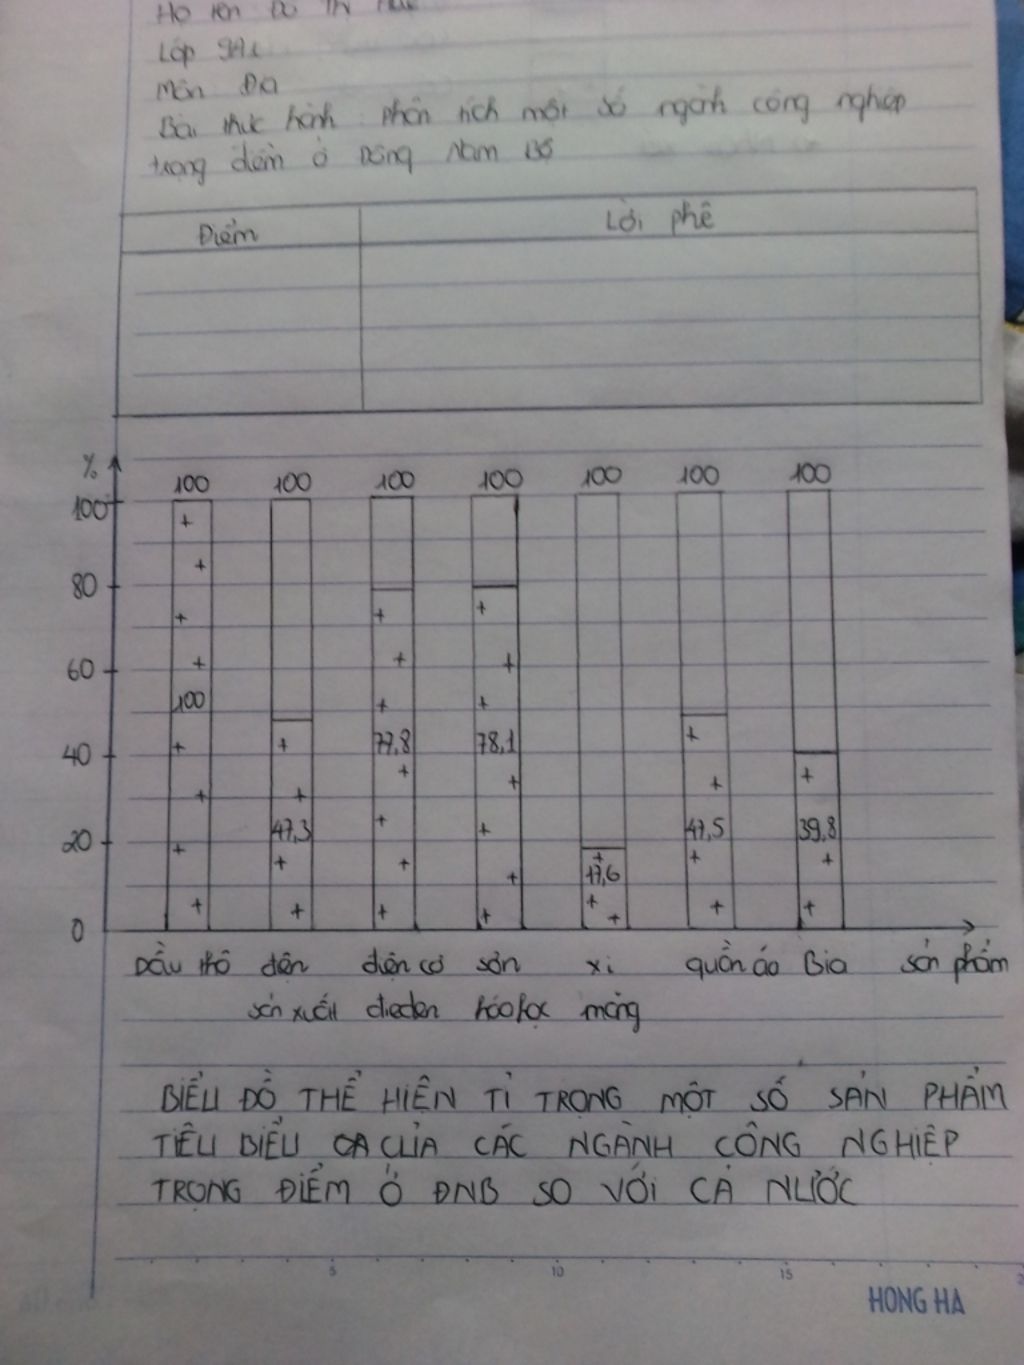 Họ tên Đỗ Thị
Lớp 9A1
Môn Địa
Bài thực hành phân tích một số ngành công nghiệp
trọng điểm ở Đông Nam Bộ
Điểm Lời phê
%
100 100 100 100 100 100 100
100
80
60
100
77,8 78,1
40
47,3 47,5 39,8
20
17,6
0
Dầu thô điện điện cơ sơn xi quần áo Bia sản phẩm
sản xuất điezen hóa học măng
BIỂU ĐỒ THỂ HIỆN TỈ TRỌNG MỘT SỐ SẢN PHẨM
TIÊU BIỂU CỦA CÁC NGÀNH CÔNG NGHIỆP
TRỌNG ĐIỂM Ở ĐNB SO VỚI CẢ NƯỚC
5 10 15
HONG HA